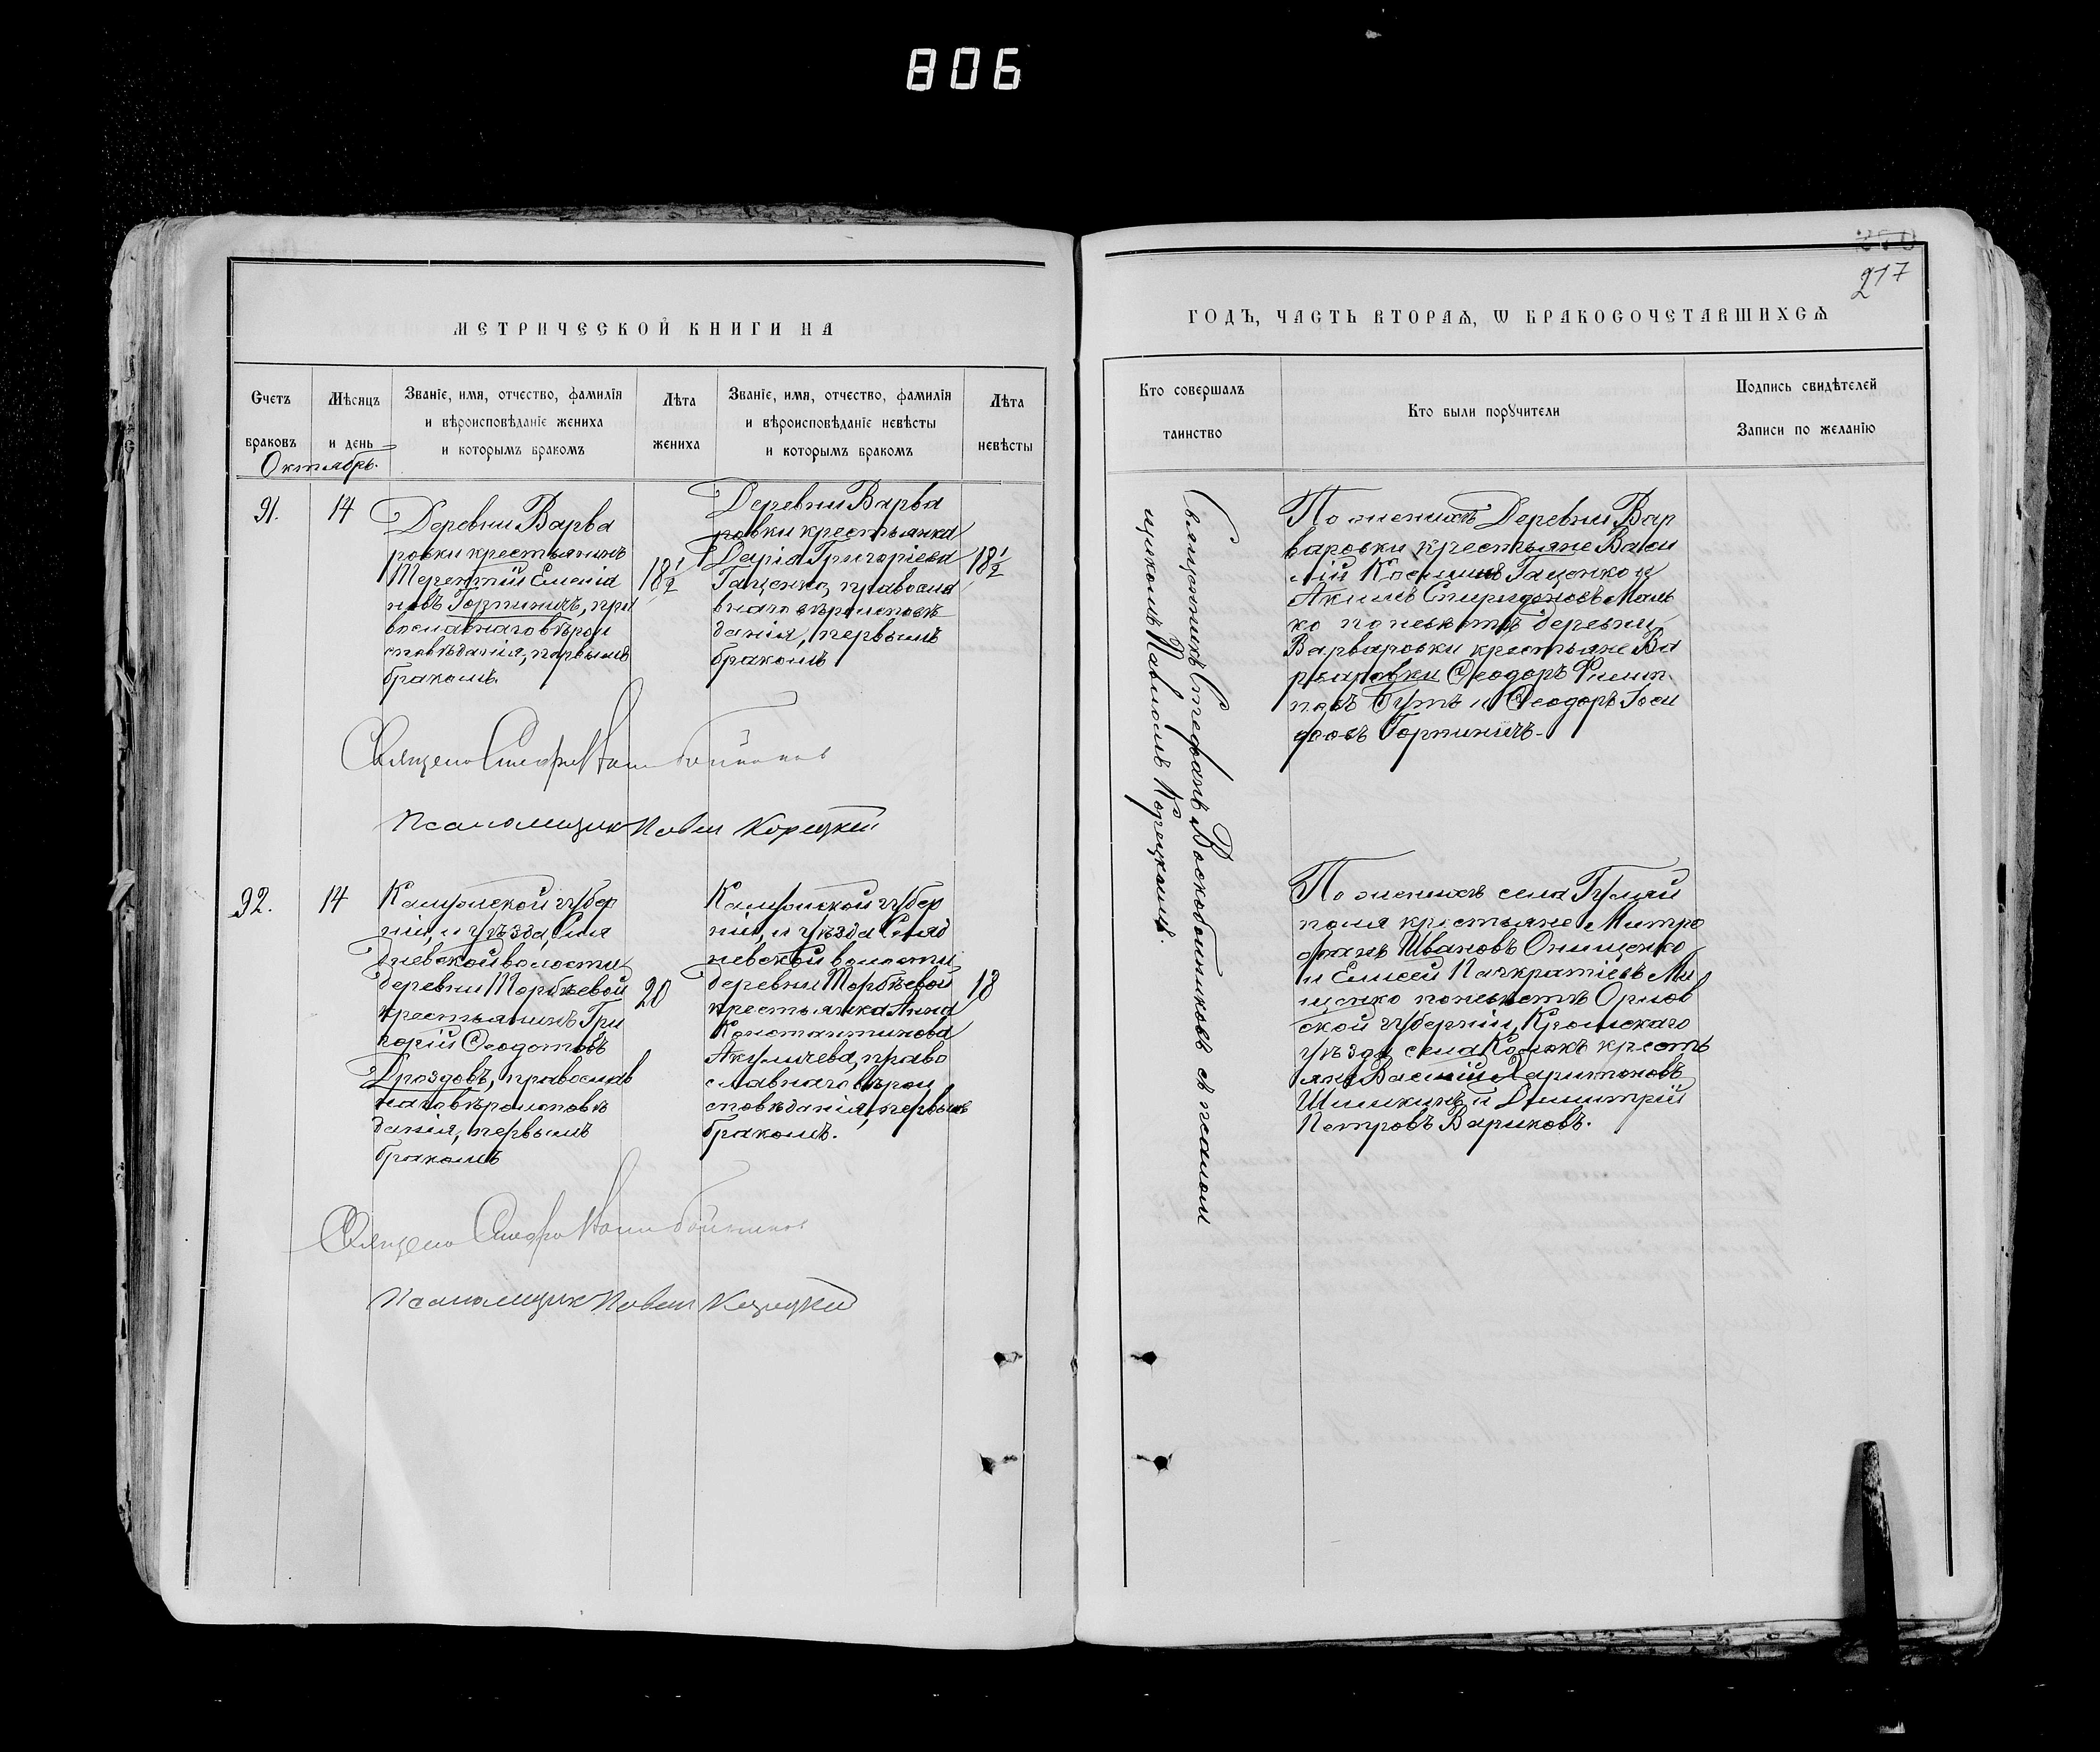 806
217
МЕТРИЧЕСКОЙ КНИГИ НА
Счетъ
браковъ
Мѣсяцъ
и день
Званіе, имя, отчество, фамилія
и вѣроисповѣданіе жениха
и которымъ бракомъ
Лѣта
жениха
Званіе, имя, отчество, фамилія
и вѣроисповѣданіе невѣсты
и которымъ бракомъ
Лѣта
невѣсты
Октябрь.
91.
14
Деревни Варва
ровки крестьянинъ
Терентій Емелiа
новъ Горпиничъ, пра
вославнаго вѣрои
сповѣданія, первымъ
бракомъ.
18 1/2
Деревни Варва
ровки крестьянка
Дарія Григоріева
Гаценко, правосла
внаго вѣроисповѣ
данія, первымъ
бракомъ
18 1/2
Псаломщик Павел Корецкій
92.
14
Калужской губер
ніи, и уѣзда,
дневской волости
деревни Торбѣевой
крестьянинъ Гри
горій Ѳеодотовъ
Дроздовъ, православ
наго вѣроисповѣ
данія, первымъ
бракомъ
20
Калужской губер
ніи, и уѣзда
невской волости
деревни Торбѣевой
крестьянка Анна
Константинова
Акуличева, право
славнаго вѣрои
сповѣданія, первымъ
бракомъ.
18
Псаломщик Павел Корецкій
ГОДЪ, ЧАСТЬ ВТОРАѦ, Ѡ БРАКОСОЧЕТАВШИХСѦ
Кто совершалъ
таинство
Кто были порꙋчители
Подпись свидѣтелей
Записи по желанію
Священникъ Стефанъ Воскобойниковъ съ псалом
щикомъ Павломъ Корецкимъ.
По женихѣ Деревни Вар
варовки крестьяне Васи
лій Косминъ Гаценко и
Акимъ Спиридоновъ Маль
ко по невѣстѣ деревни
Варваровки крестьяне Ва
рваровки Ѳеодоръ Филип
повъ Бутъ и Ѳеодоръ Іоси
фовъ Горпиничъ.
По женихѣ села Гуляй
поля крестьяне Митро
фанъ Ивановъ Онищенко
и Елисей Панкратіевъ Ми
щенко по невѣстѣ Орлов
ской губерніи, Кромскаго
уѣзда села крестъ
яне Василій Харитоновъ
Шишкинъ и Димитрій
Петровъ Вариковъ.